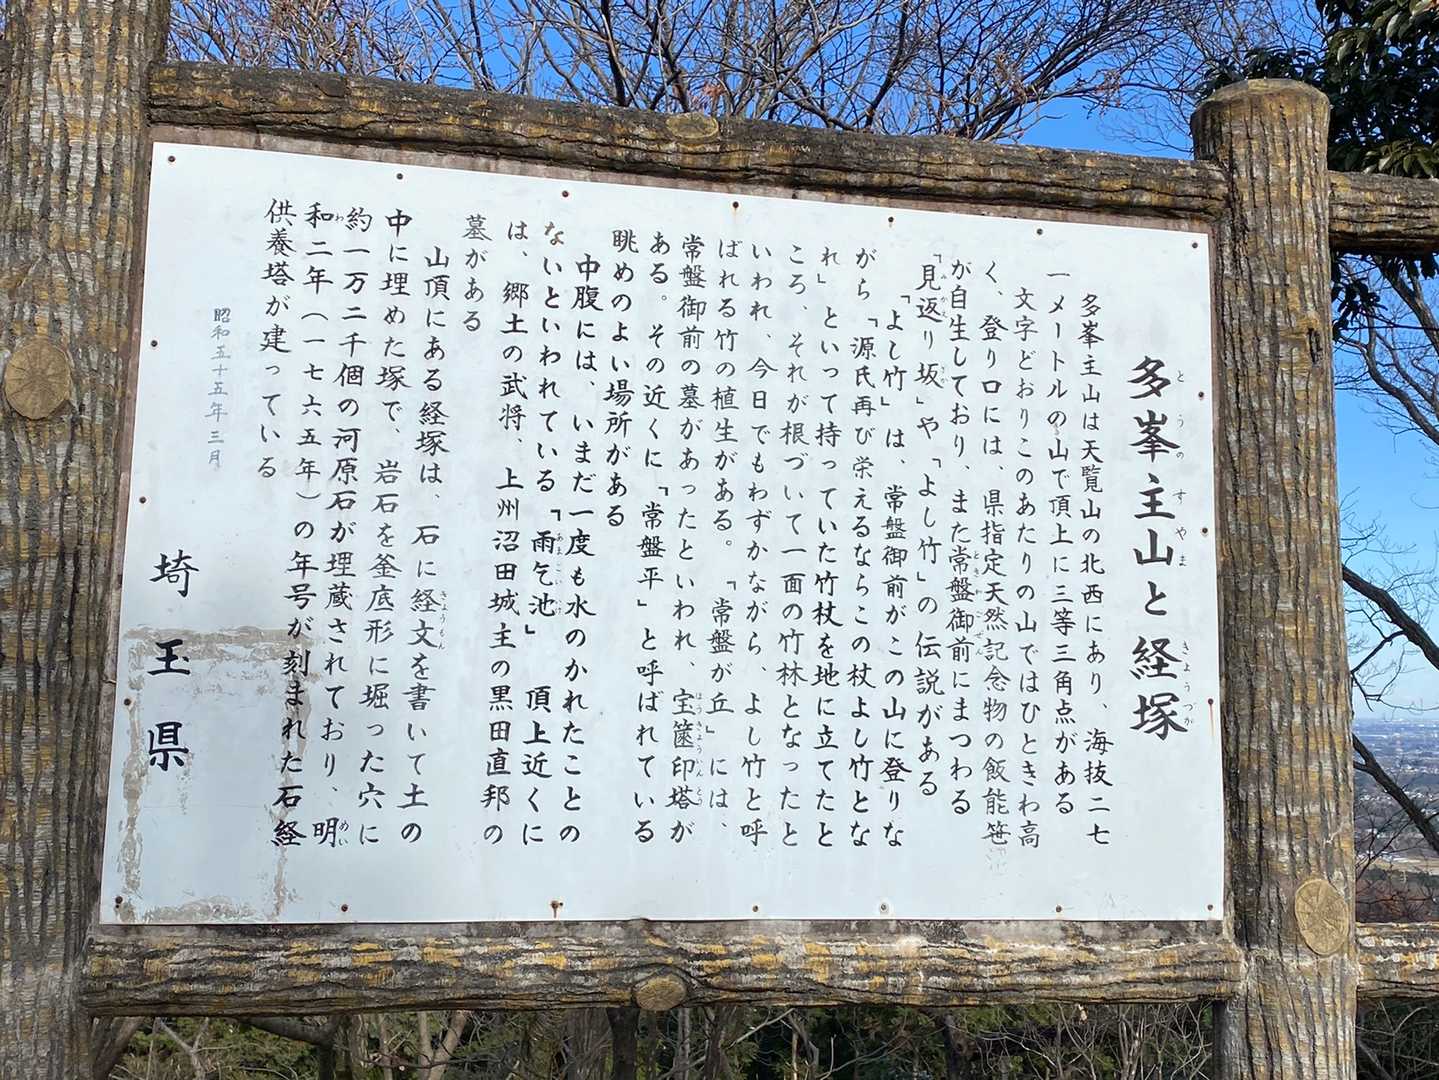 多峯主山と経塚
とうのすやまきょうづか
多峯主山は天覧山の北西にあり、海抜二七
一メートルの山で頂上に三等三角点がある
文字どおりこのあたりの山ではひときわ高
く、登り口には、県指定天然記念物の飯能笹
が自生しており、また常盤御前にまつわる
「見返り坂」や「よし竹」の伝説がある
「よし竹」は、常盤御前がこの山に登りな
がら「源氏再び栄えるならこの杖よし竹とな
れ」といって持っていた竹杖を地に立てたと
ころ、それが根づいて一面の竹林となったと
いわれ、今日でもわずかながら、よし竹と呼
ばれる竹の植生がある。「常盤が丘」には、
常盤御前の墓があったといわれ、宝篋印塔が
ある。その近くに「常盤平」と呼ばれている
眺めのよい場所がある
中腹には、いまだ一度も水のかれたことの
ないといわれている「雨乞池」頂上近くに
は、郷土の武将、上州沼田城主の黒田直邦の
墓がある
山頂にある経塚は、石に経文を書いて土の
中に埋めた塚で、岩石を釜底形に堀った穴に
約一万二千個の河原石が埋蔵されており、明
和二年（一七六五年）の年号が刻まれた石経
供養塔が建っている
昭和五十五年三月
埼玉県